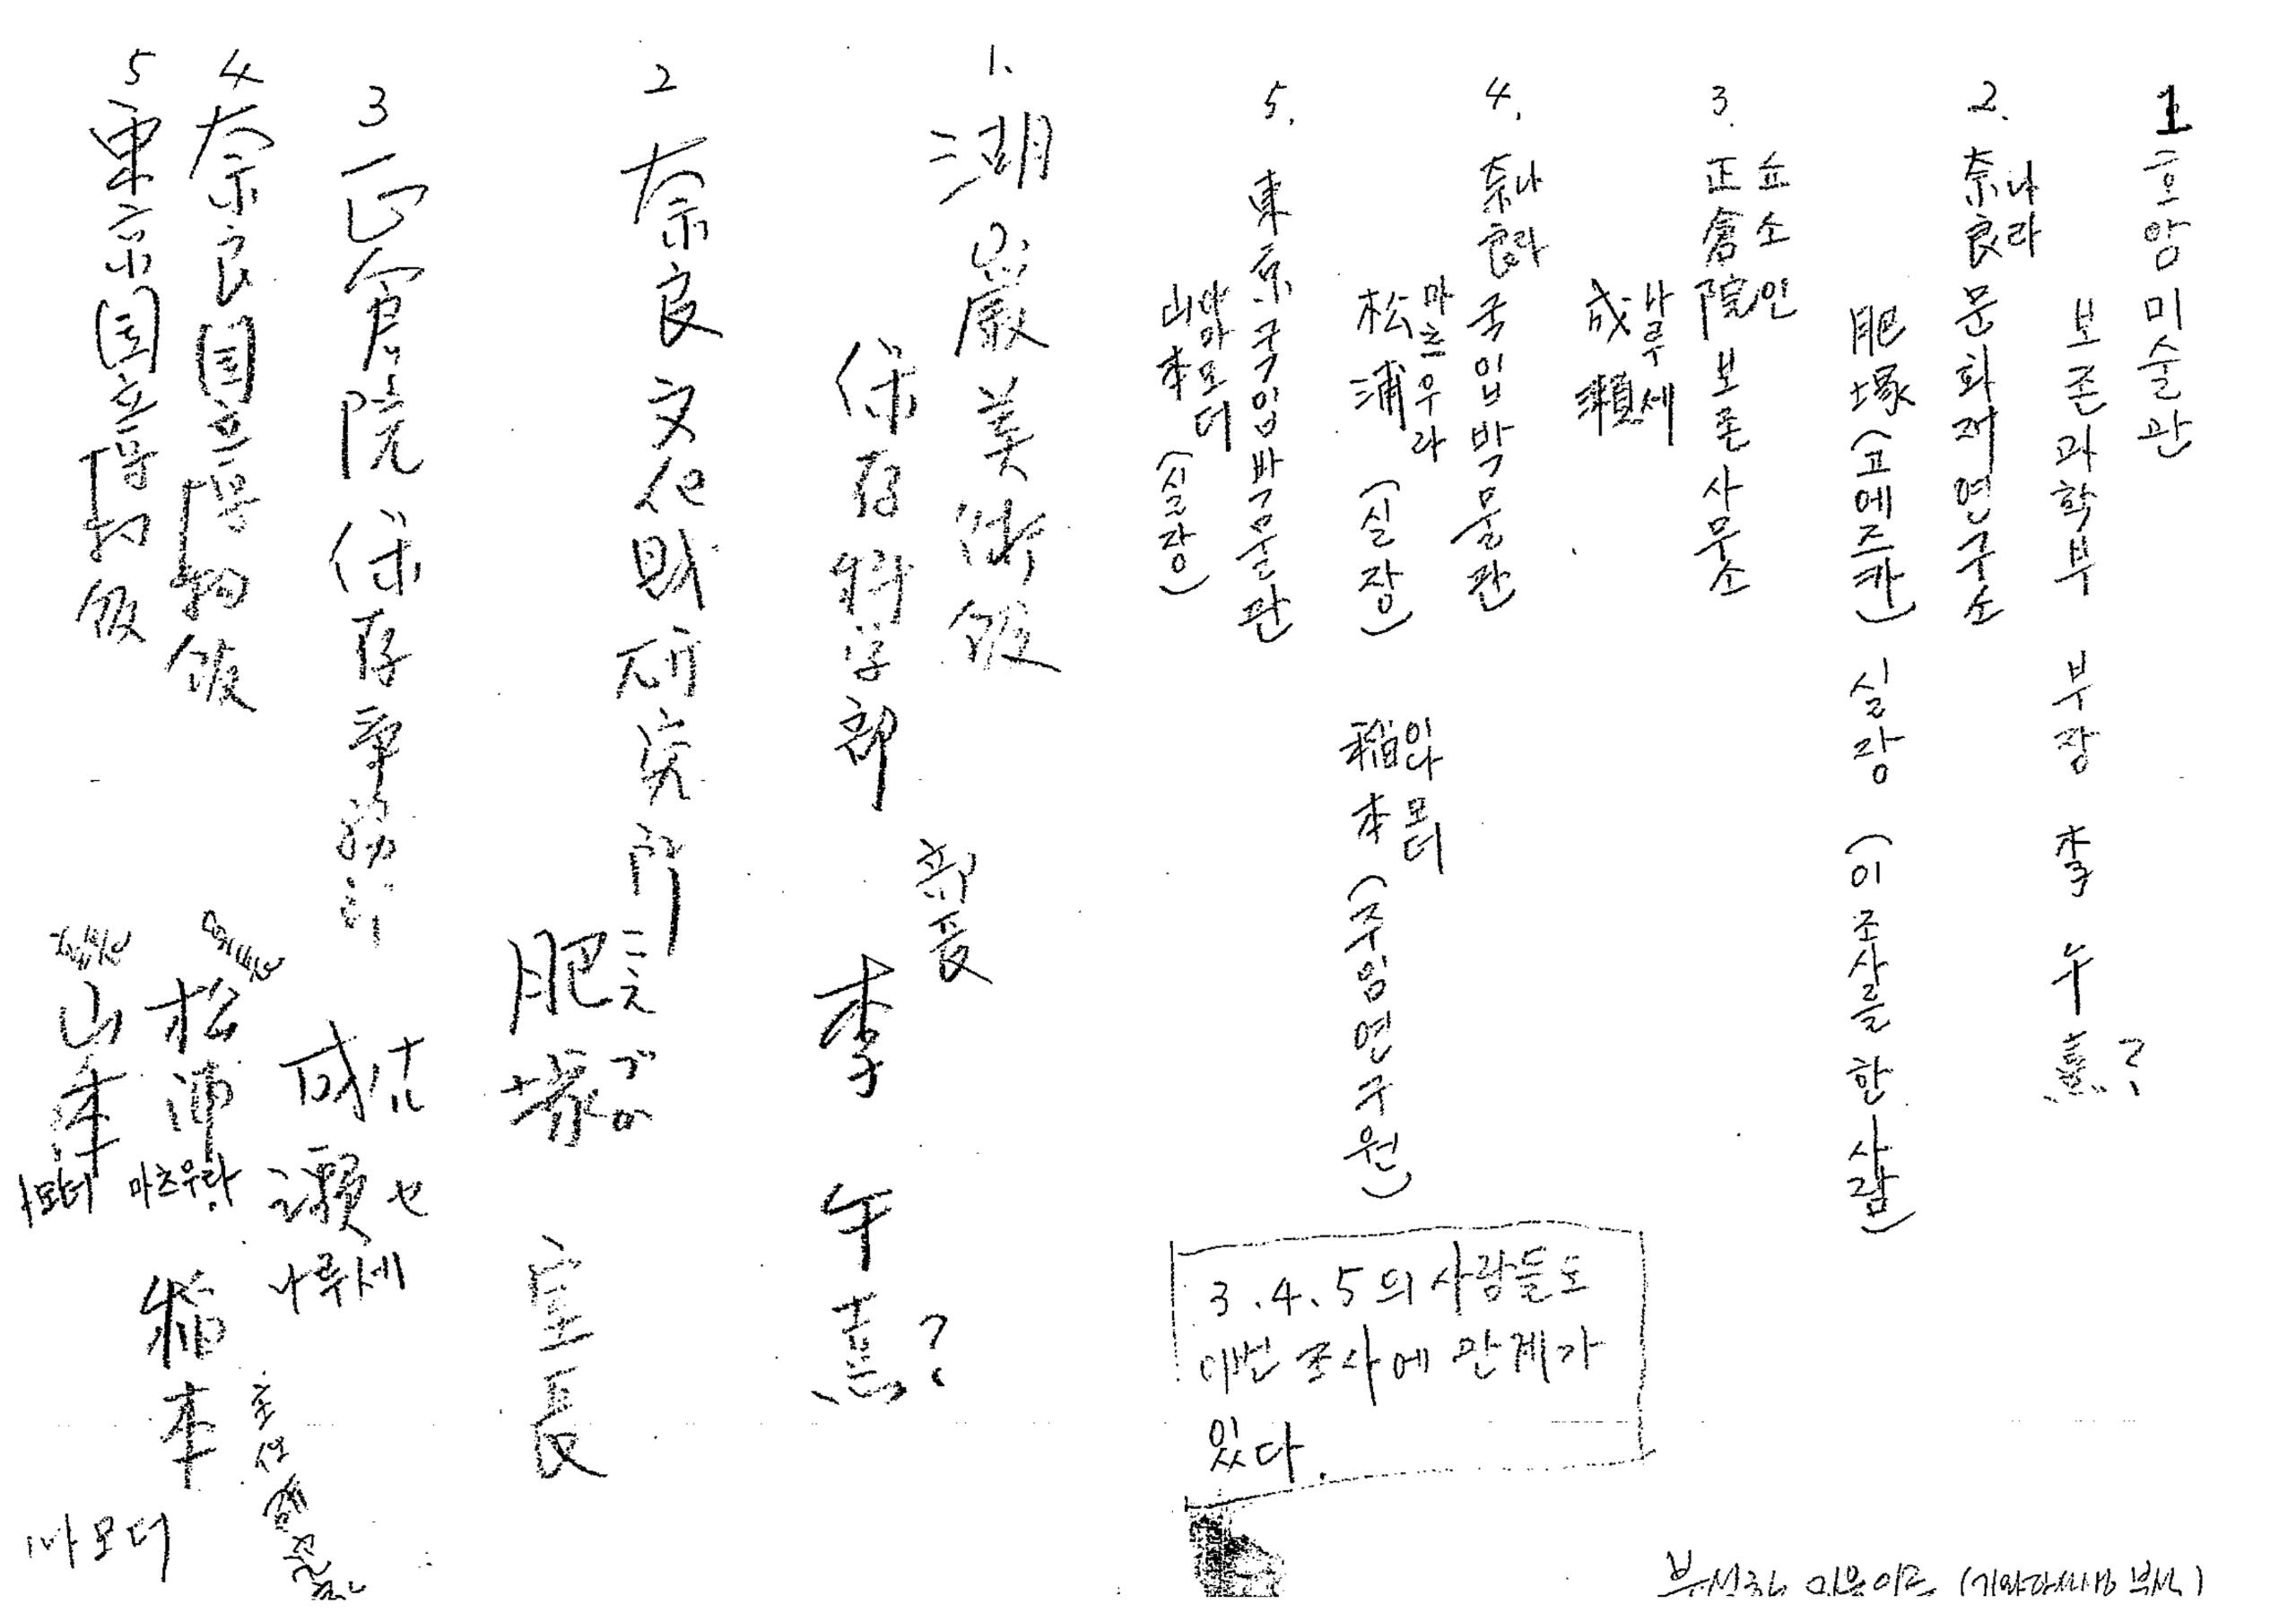 1 호암미술관
보존과학부 부장 李午憙?
2. 奈良문화재연구소
나라
肥塚(고에즈카) 실장 (이 조사를 한 사람)
3. 正倉院 보존사무소
쇼소인
成瀬
나루세
4. 奈良국립박물관
나라
松浦 (실장) 稲本 (주임연구원)
마츠우라 이나모더
5. 東京국립박물관
山本 (실장)
야마모더
3.4.5의 사람들도
이번 조사에 관계가
있다.
1. 湖巖美術館
保存科学部 部長 李午憙?
2 奈良文化財研究所
肥塚 室長
こえづか
3 正倉院保存事務所
成瀬
ナルセ
나루세
4 奈良国立博物館
松浦 稲本
마츠우라
5 東京国立博物館
山本